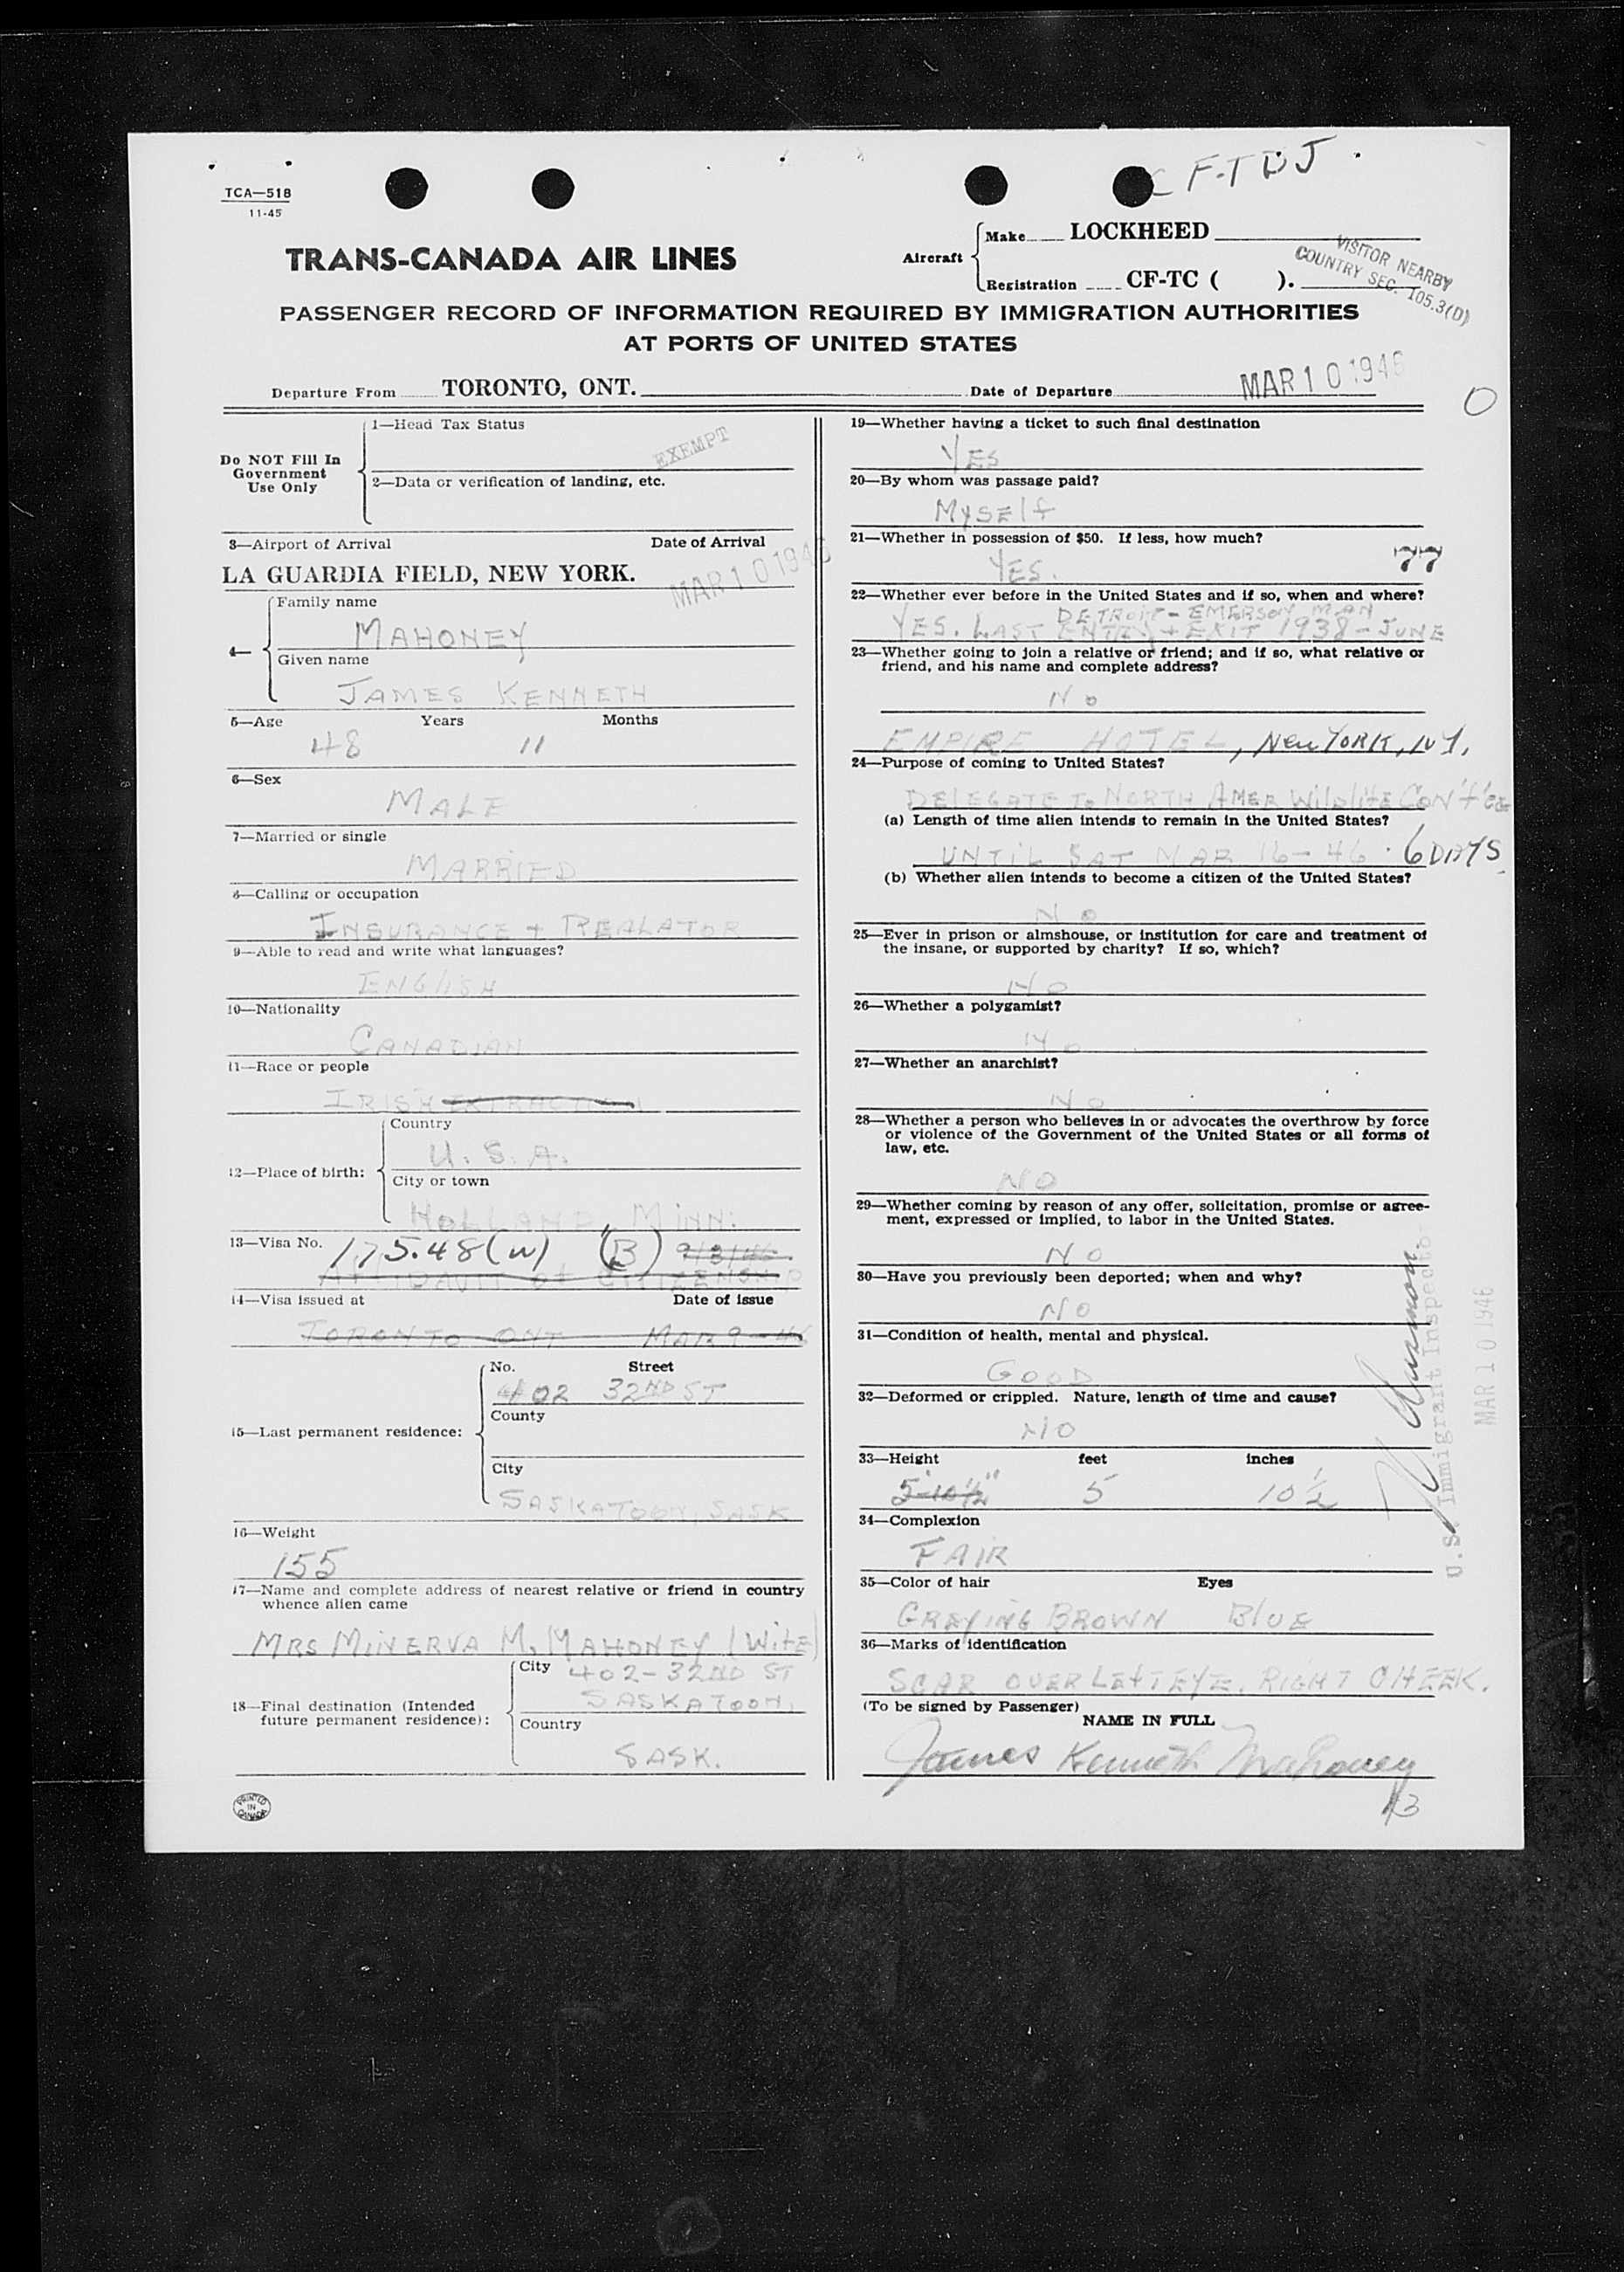 CF-TDJ
TCA—518
11-45
TRANS-CANADA AIR LINES
Aircraft
Make LOCKHEED
Registration CF-TC ( ).
VISITOR NEARBY
COUNTRY SEC. 105.3(D)
PASSENGER RECORD OF INFORMATION REQUIRED BY IMMIGRATION AUTHORITIES
AT PORTS OF UNITED STATES
Departure From TORONTO, ONT. Date of Departure MAR 10 1946
O
Do NOT Fill In
Government
Use Only
1—Head Tax Status
EXEMPT
2—Data or verification of landing, etc.
3—Airport of Arrival Date of Arrival
LA GUARDIA FIELD, NEW YORK. MAR 10 1946
4—
Family name
MAHONEY
Given name
JAMES KENNETH
5—Age Years Months
48 11
6—Sex
MALE
7—Married or single
MARRIED
8—Calling or occupation
INSURANCE + REALATOR
9—Able to read and write what languages?
ENGlISH
10—Nationality
CANADIAN
11—Race or people
IRISH EXTRACTION
12—Place of birth:
Country
U.S.A.
City or town
HOLLAND, MINN.
13—Visa No. 175.48(W) (B)
AFFIDAVIT of CITIZENSHIP
14—Visa issued at Date of issue
TORONTO ONT MAR 9-46
15—Last permanent residence:
No. Street
402 32ND ST
County
City
SASKATOON, SASK
16—Weight
155
17—Name and complete address of nearest relative or friend in country
whence alien came
MRS MINERVA M. MAHONEY (WifE)
18—Final destination (Intended
future permanent residence):
City 402-32ND ST
SASKATOON,
Country
SASK.
PRINTED
IN
CANADA
19—Whether having a ticket to such final destination
YES
20—By whom was passage paid?
MySElf
21—Whether in possession of $50. If less, how much?
YES. 77
22—Whether ever before in the United States and if so, when and where?
DETROIT - EMERSON MAN
YES. LAST ENTRY + EXIT 1938 - JUNE
23—Whether going to join a relative or friend; and if so, what relative or
friend, and his name and complete address?
No
EMPIRE HOTEL, New YORK, N.Y.
24—Purpose of coming to United States?
DELEGATE To NORTH AMER WildlifE CoN'f'cE
(a) Length of time alien intends to remain in the United States?
UNTIL SAT MAR 16-46. 6 DAYS
(b) Whether alien intends to become a citizen of the United States?
No
25—Ever in prison or almshouse, or institution for care and treatment of
the insane, or supported by charity? If so, which?
No
26—Whether a polygamist?
No
27—Whether an anarchist?
No
28—Whether a person who believes in or advocates the overthrow by force
or violence of the Government of the United States or all forms of
law, etc.
NO
29—Whether coming by reason of any offer, solicitation, promise or agree-
ment, expressed or implied, to labor in the United States.
NO
30—Have you previously been deported; when and why?
NO
31—Condition of health, mental and physical.
GOOD
32—Deformed or crippled. Nature, length of time and cause?
NO
33—Height feet inches
5'-10½" 5 10½
34—Complexion
FAIR
35—Color of hair Eyes
GREYING BROWN BlUE
36—Marks of identification
SCAR OVER LEfT EYE. RIGHT CHEEK.
(To be signed by Passenger)
NAME IN FULL
James Kenneth Mahoney
13
U.S. Immigrant Inspector
MAR 10 1946